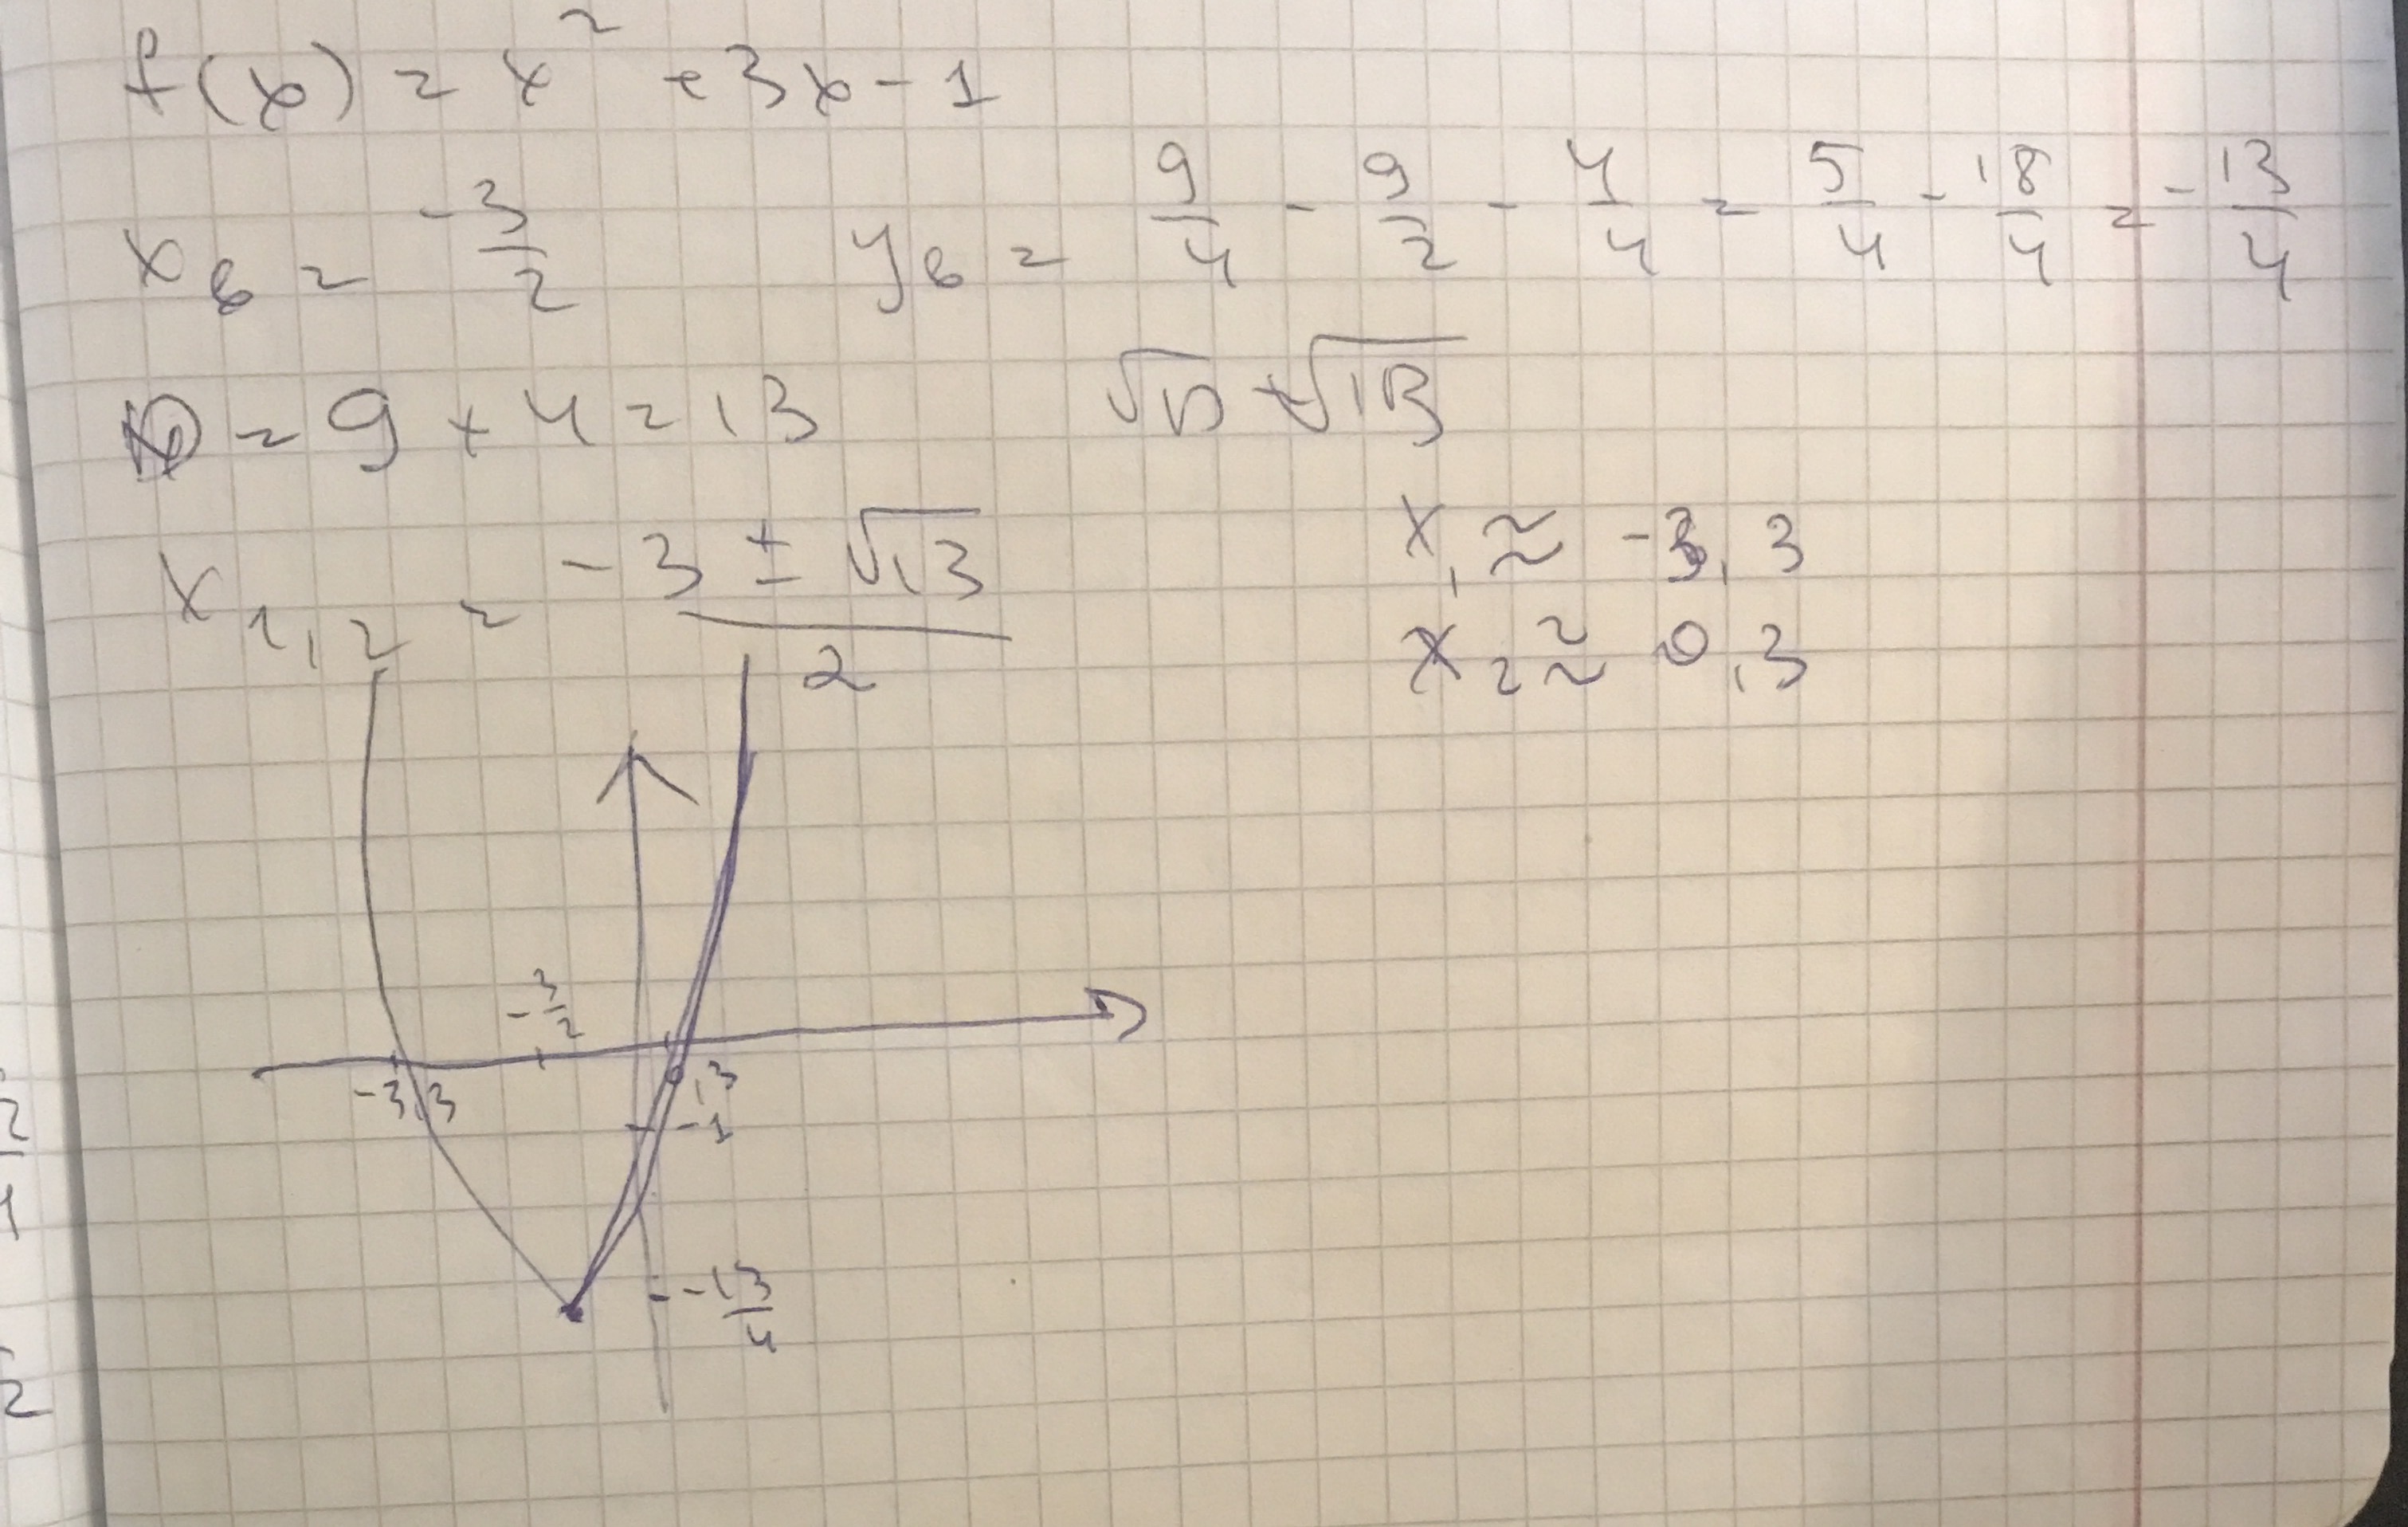 f(x) = x² + 3x - 1
xв = -3/2    yв = 9/4 - 9/2 - 4/4 = 5/4 - 18/4 = -13/4
D = 9 + 4 = 13    √D = √13
x₁,₂ = (-3 ± √13)/2
x₁ ≈ -3,3
x₂ ≈ 0,3
-3/2
-3,3
0,3
-1
-13/4
2
1
2